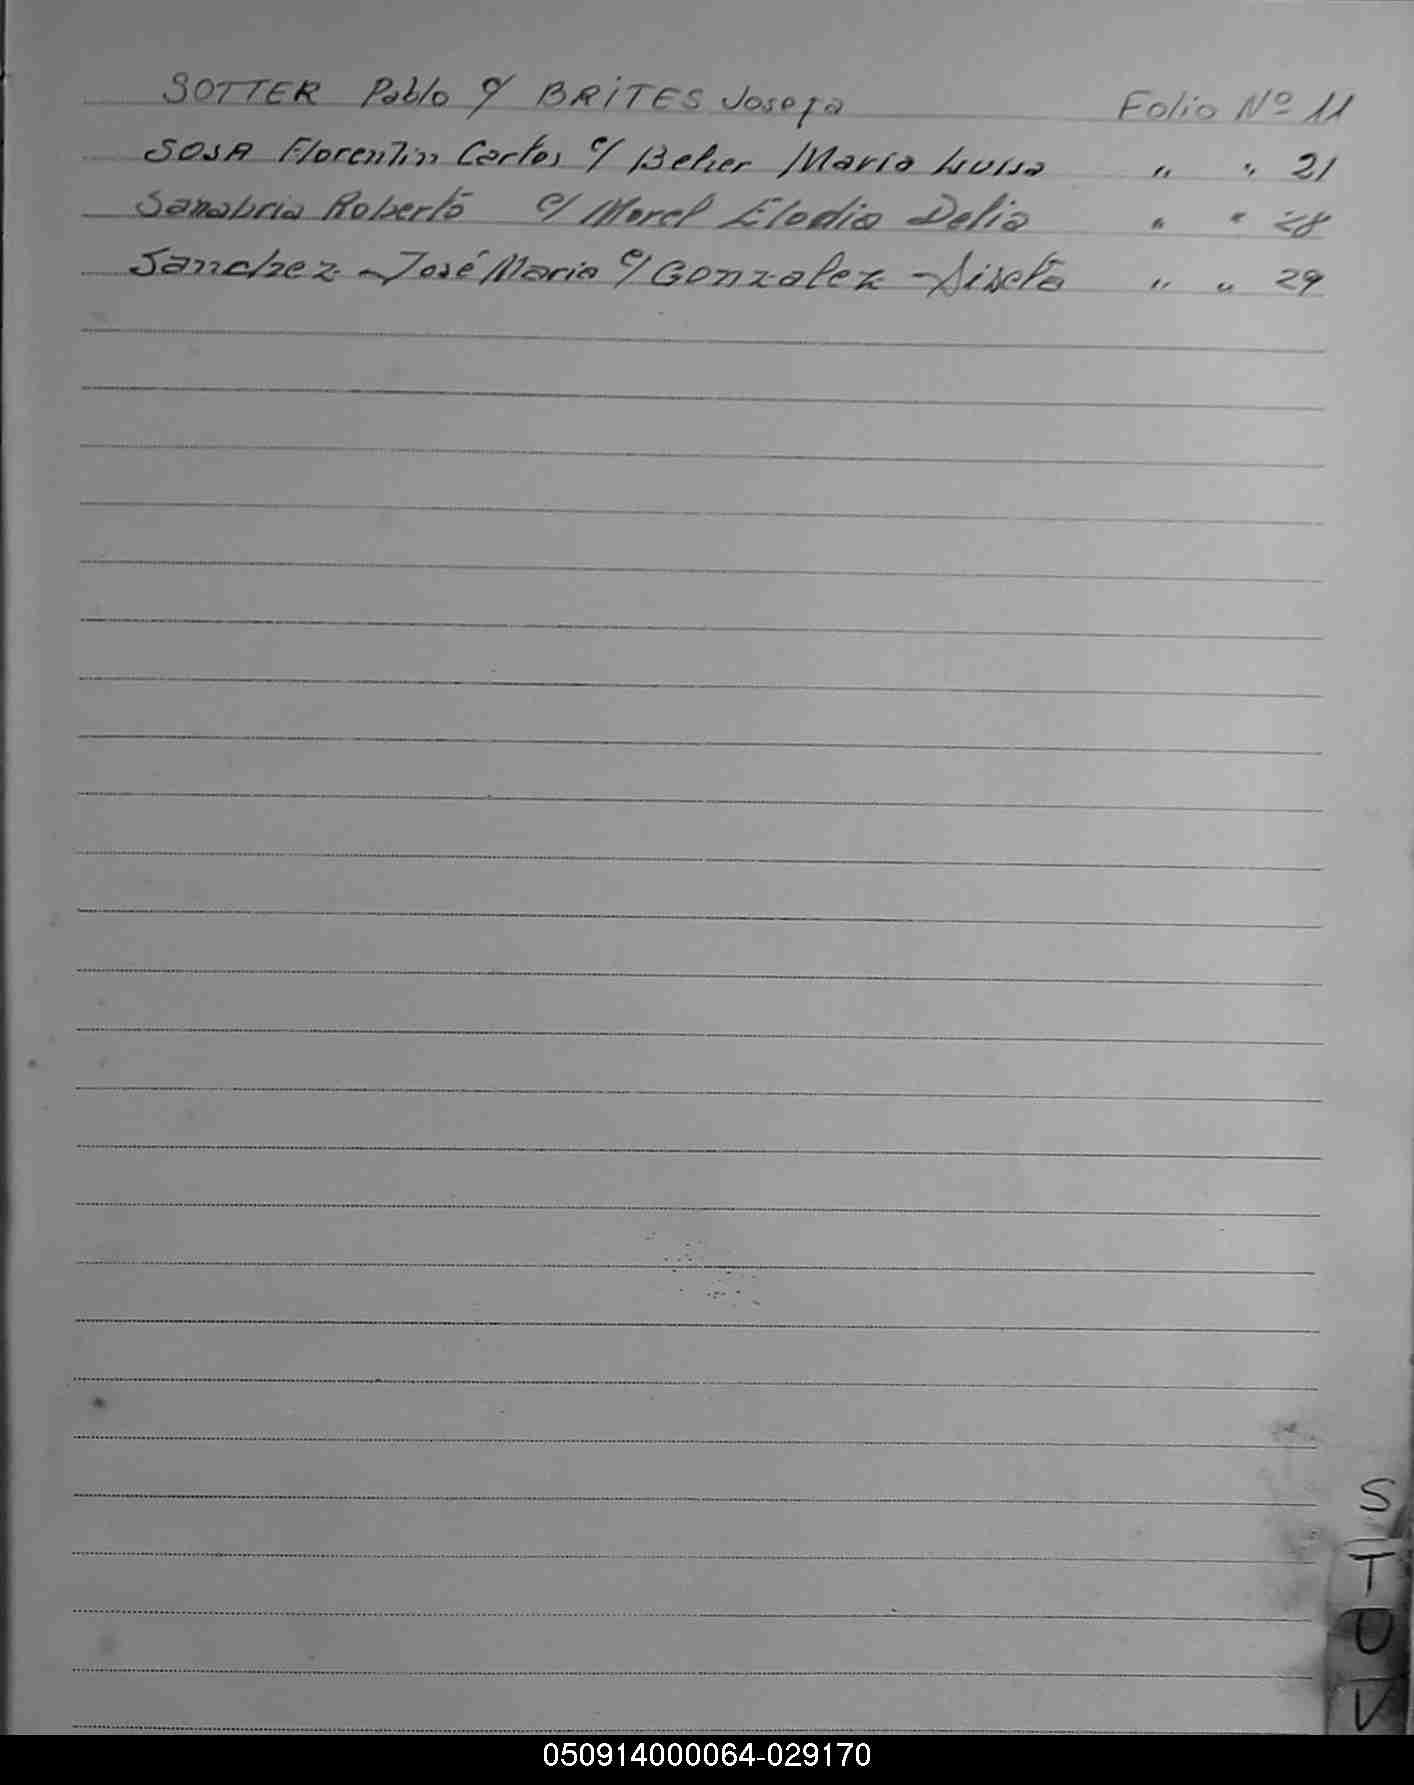 SOTTER Pablo c/ BRITES Josefa Folio Nº 11
SOSA Florentin Carlos c/ Beher Maria Luisa " " 21
Sanabria Roberto c/ Morel Elodia Delia " " 28
Sanchez José Maria c/ Gonzalez " " 29
S
T
U
V
050914000064-029170